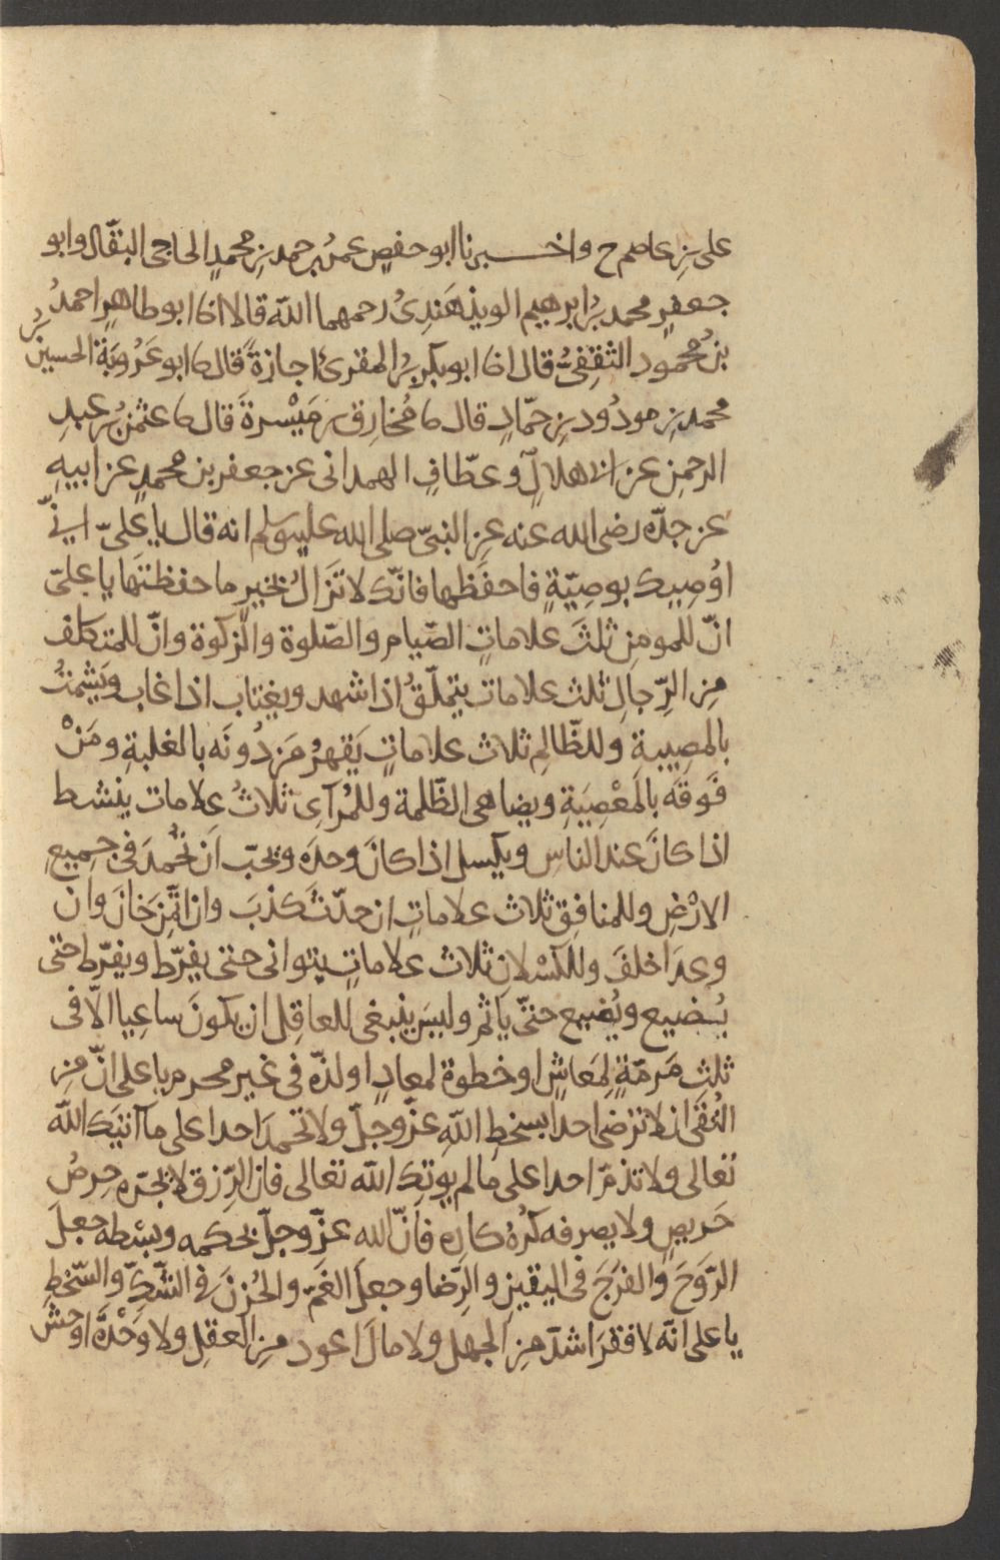 على بن عاصم ح واخــــبرنا ابو حفصٍ عمرُ بن حمد بنِ محمدٍ الحاجى البقّال وابو
جعفرٍ محمد بنُ ابرهيم الويذهَندِىُ رحمهما الله قالا انا ابو طاهرٍ احمدُ
بنُ محمود الثقفىُّ قال انا ابو بكر بنُ المقرئ اجازةً قال ثنا ابو عَرُوبَة الحسين بنُ
محمد بن مودُود بنِ حمّادٍ قال ثنا مُخارِق بن مَيْسرةَ قال ثنا عثمنُ بن عبدِ
الرحمنِ عن ابى هلالٍ وعطّافٍ الهمدانى عن جعفر بن محمدٍ عن ابيهِ
عن جدّه رضى الله عنه عنِ النبىّ صلى الله عليه وسلم انه قال يا علىّ انىّ
اوُصِيك بوصِيّةٍ فاحفَظها فانّك لا تَزالُ بخيرٍ ما حفظتَها يا علىّ
انّ للمومنِ ثلثَ علاماتٍ الصّيام والصّلوة والزّكوة وانّ للمتكلف
مِن الرِّجالِ ثلث علاماتٍ يتملّقُ اذا شهد ويغتاب اذا غاب ويَشمتُ
بالمصِيبةِ وللظّالِمِ ثلاث علاماتٍ يَقهرُ مَن دُونَه بالغلبةِ ومَنْ
فَوقَه بالمَعْصِيَةِ ويضاهى الظّلمة وللمُرآى ثلاثُ علامات ينشط
اذا كانَ عند الناسِ ويكسل اذا كانَ وحدَه ويحبّ اَن تُحمدَ فى جمِيعِ
الارْضِ وللمنافِقِ ثلاث علاماتٍ ان حدّثَ كذبَ وان اتُمِنَ خَانَ وان
وعدَ اخلفَ وللكَسْلانِ ثلاث علاماتٍ يتوانى حتى يفرّط ويفرّط حتى
يُضيع ويُضيع حتّى ياثم وليسَ ينبغى للعاقِل ان يكونَ ساعِيا الّا فى
ثلثٍ مَرمّةٍ لِمَعاشٍ او خطوة لمعادٍ او لذّه فى غير محرم يا على انّ مِنِ
التُقَى ان لا ترضى احدا بسخطِ اللهِ عزّ وجلّ ولا تحمدَ احدا على ما آتيَك الله
تعالى ولا تذمّ احدا على ما لم يوتِك الله تعالى فان الرِّزق لا يجُرّه حِرصُ
حَرِيصٍ ولا يصرفه كَرْهُ كارِه فانّ الله عزّ وجلّ بحكمه وبسْطه جعلَ
الرَّوحَ والفرَجَ فى اليقينِ والرِّضا وجعلَ الغمّ والحُزنَ فى الشّكِّ والسّخطِ
يا على انّه لا فقرَ اشدّ مِن الجهلِ ولا مالَ اعود مِن العقلِ ولا وَحْدَةَ اوحشَ